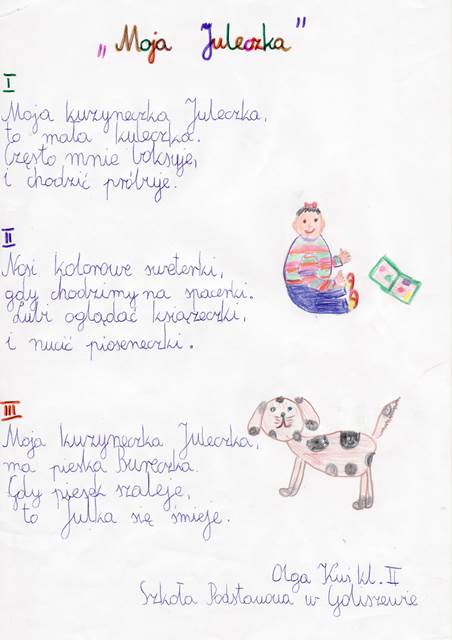 „Moja Juleczka”
I
Moja kuzyneczka Juleczka,
to mała kuleczka.
Często mnie boksuje,
i chodzić próbuje.
II
Nosi kolorowe sweterki,
gdy chodzimy na spacerki.
Lubi oglądać książeczki,
i nucić pioseneczki.
III
Moja kuzyneczka Juleczka,
ma pieska Bureczka.
Gdy piesek szaleje,
to Julka się śmieje.
Olga Kuś kl. II
Szkoła Podstawowa w Goliszewie